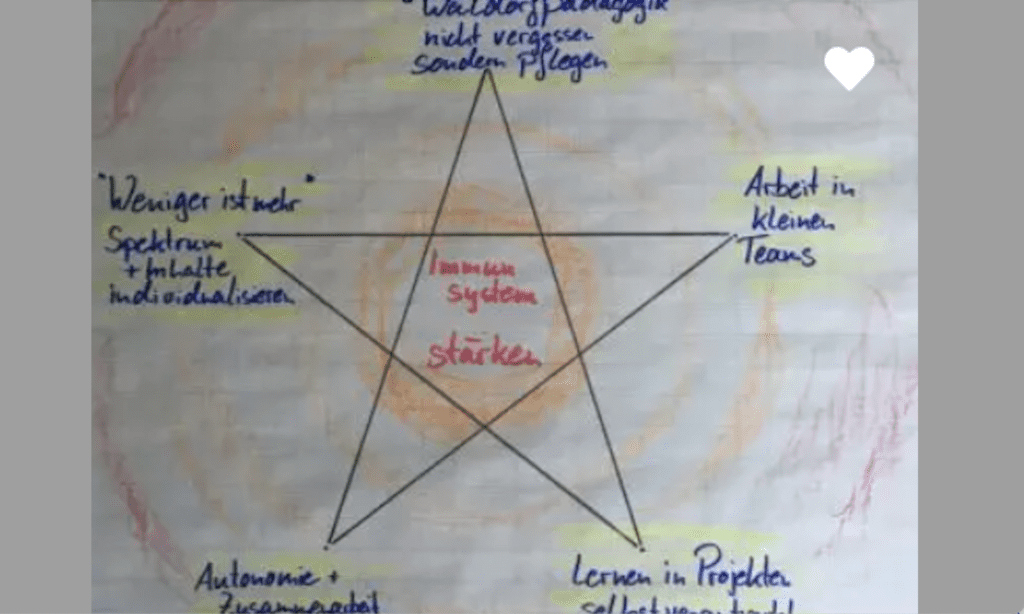 "Waldorfpädagogik
nicht vergessen
sondern Pflegen
"Weniger ist mehr"
Spektrum
+ Inhalte
individualisieren
Arbeit in
kleinen
Teams
Immun
system
stärken
Autonomie +
Zusammenarbeit
Lernen in Projekten